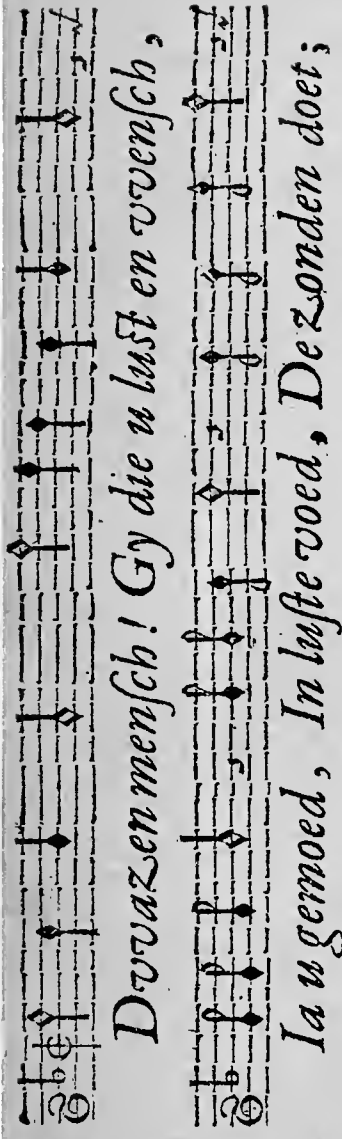 Dvvazen menſch! Gy die u luſt en vvenſch,
Ia u gemoed, In luſte voed, De zonden doet;